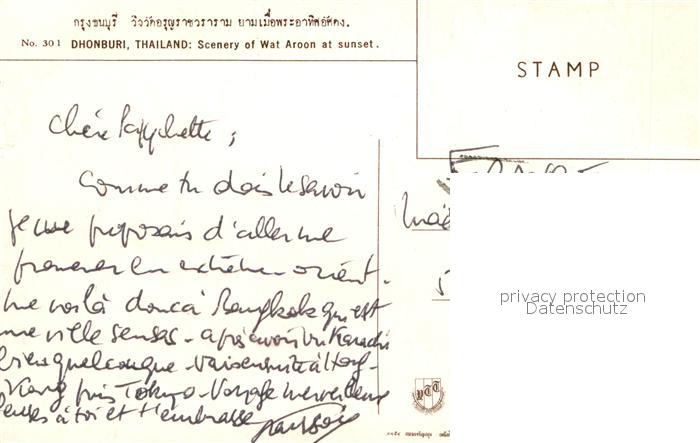 กรุงธนบุรี วิววัดอรุณราชวราราม ยามเมื่อพระอาทิตย์อัศดง.
No. 301 DHONBURI, THAILAND: Scenery of Wat Aroon at sunset.
STAMP
Chère
comme tu dois le savoir
je me proposais d'aller me
promener en extrême orient.
me voilà donc à Bangkok qui est
une ville sensas - après avoir vu Karachi
bien quelconque - vais ensuite à Hong-
Kong puis Tokyo - Voyage merveilleux
Pense à toi et t'embrasse
privacy protection
Datenschutz